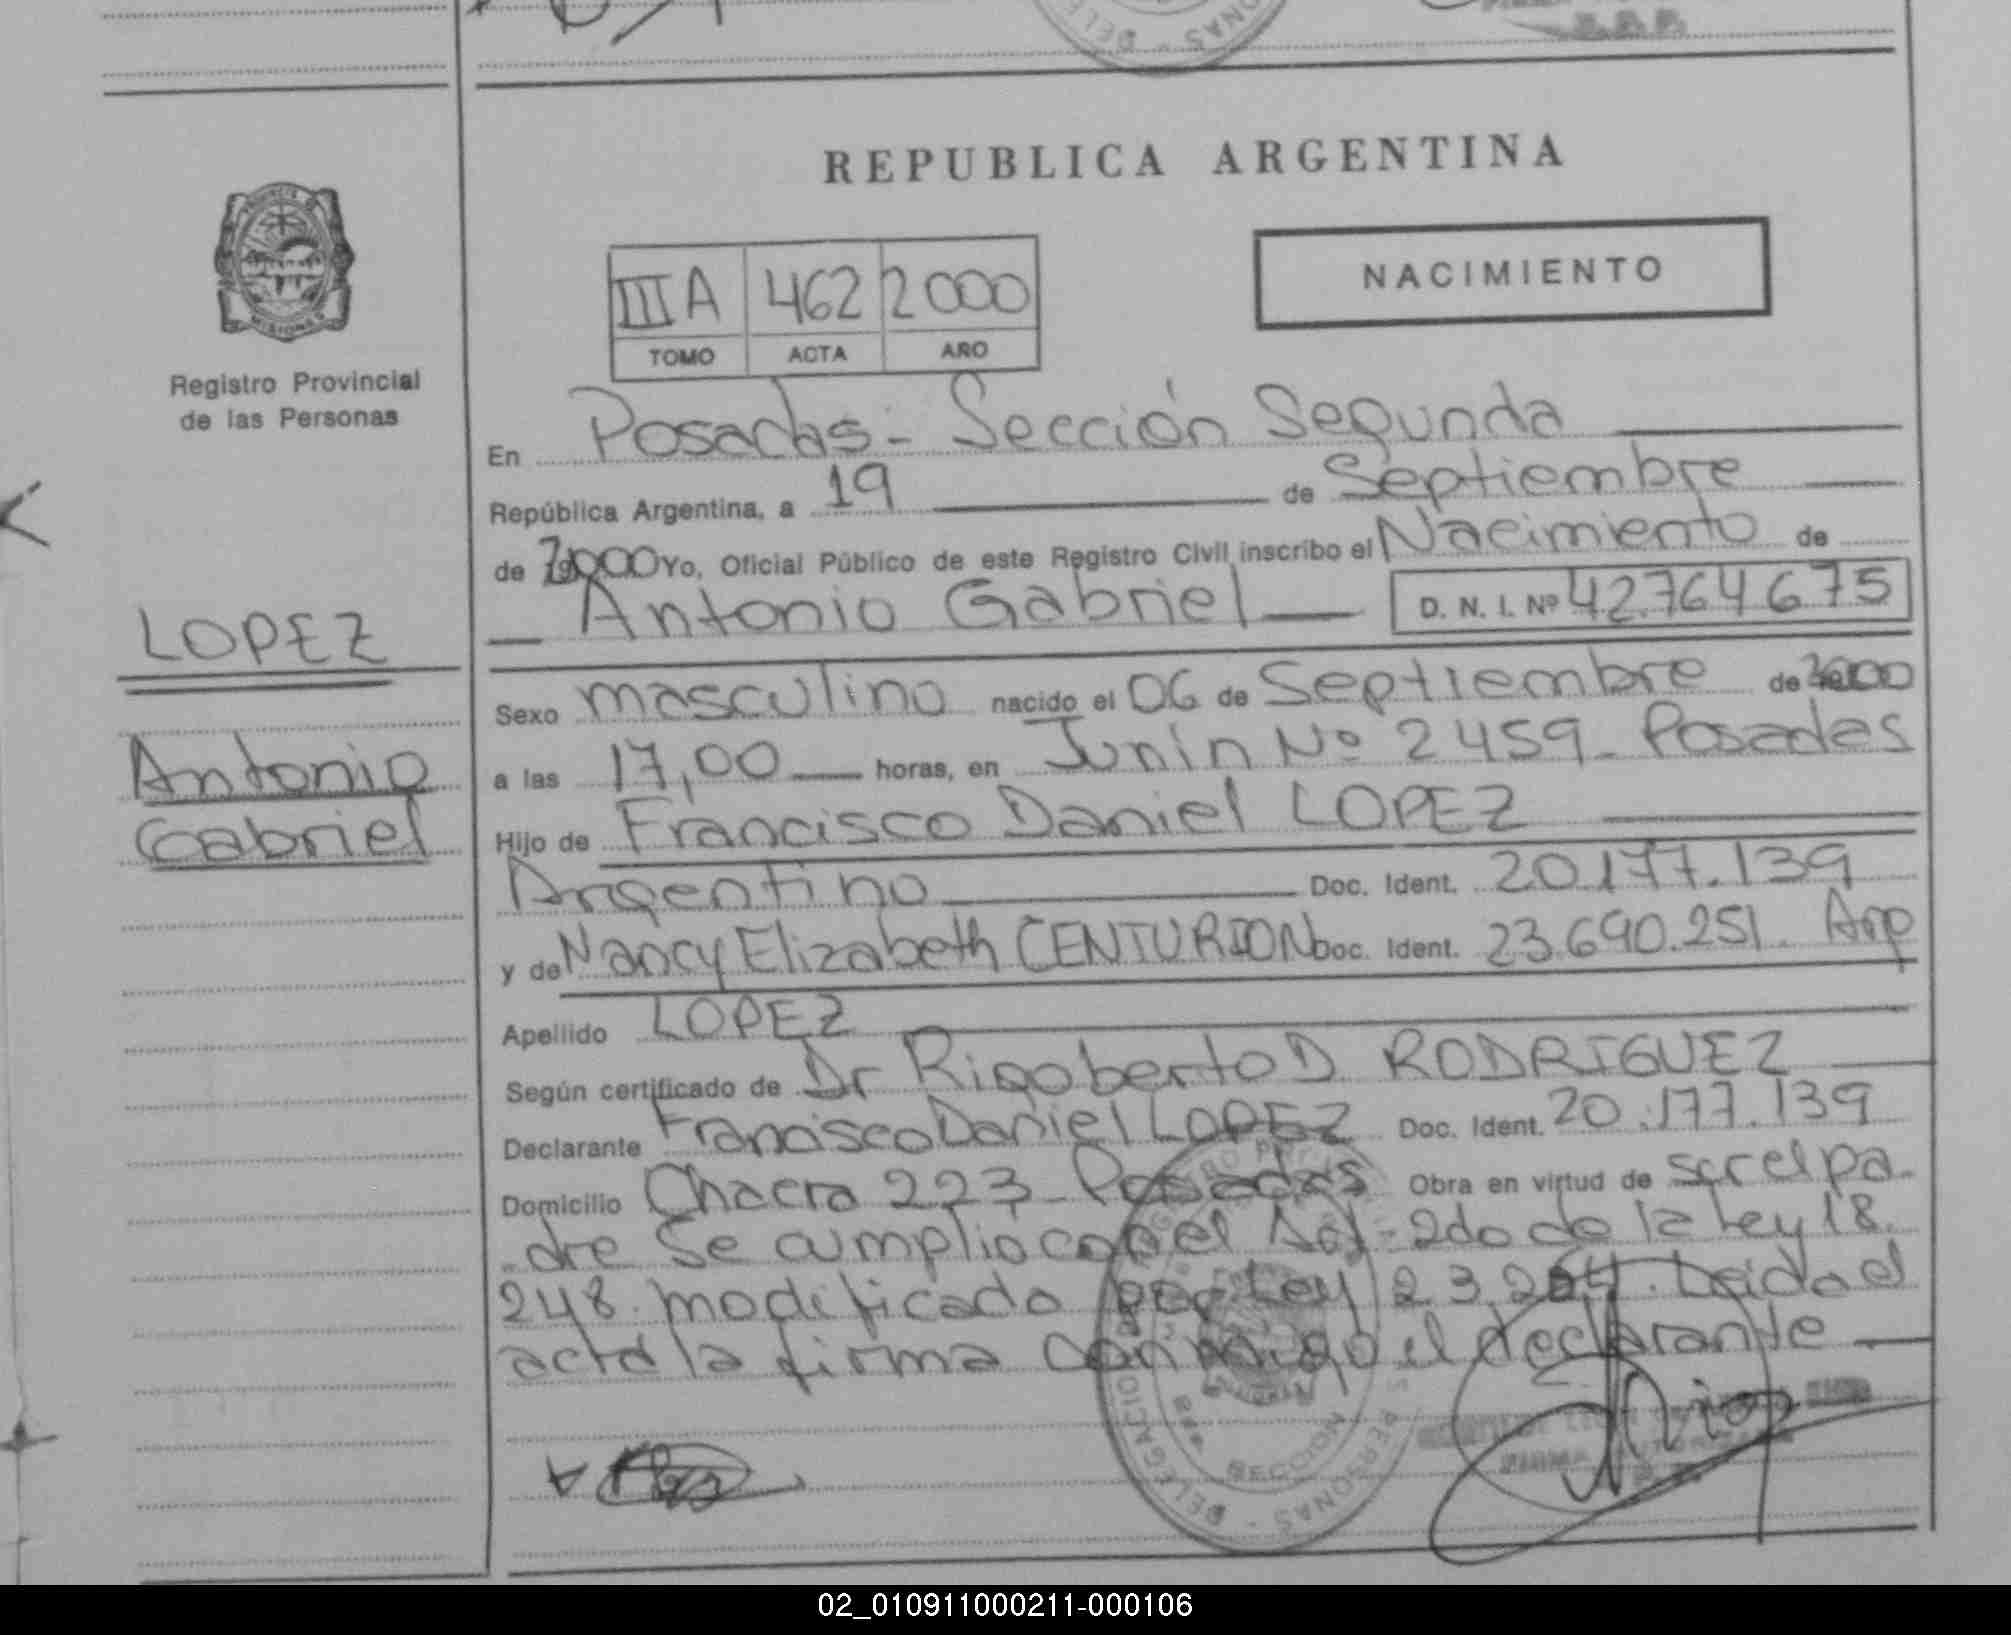 REPUBLICA ARGENTINA
IIIA 462 2000
TOMO ACTA AÑO
NACIMIENTO
MISIONES
Registro Provincial
de las Personas
LOPEZ
Antonio
Gabriel
En Posadas - Sección Segunda
República Argentina, a 19 de Septiembre
de 2000 Yo, Oficial Público de este Registro Civil inscribo el Nacimiento de
Antonio Gabriel D. N. I. Nº 42.764675
Sexo masculino nacido el 06 de Septiembre de 2000
a las 17,00 horas, en Junín Nº 2459 - Posadas
Hijo de Francisco Daniel LOPEZ
Argentino Doc. Ident. 20.177.139
y de Nancy Elizabeth CENTURION Doc. Ident. 23.690.251. Arg
Apellido LOPEZ
Según certificado de Dr Rigoberto D. RODRIGUEZ
Declarante Francisco Daniel LOPEZ Doc. Ident. 20.177.139
Domicilio Chacra 223 - Posadas Obra en virtud de ser el pa-
dre Se cumplio con el Art. 2do de la Ley 18.
248. modificado por Ley 23.264. Leida el
acta la firma conmigo el declarante
02_010911000211-000106